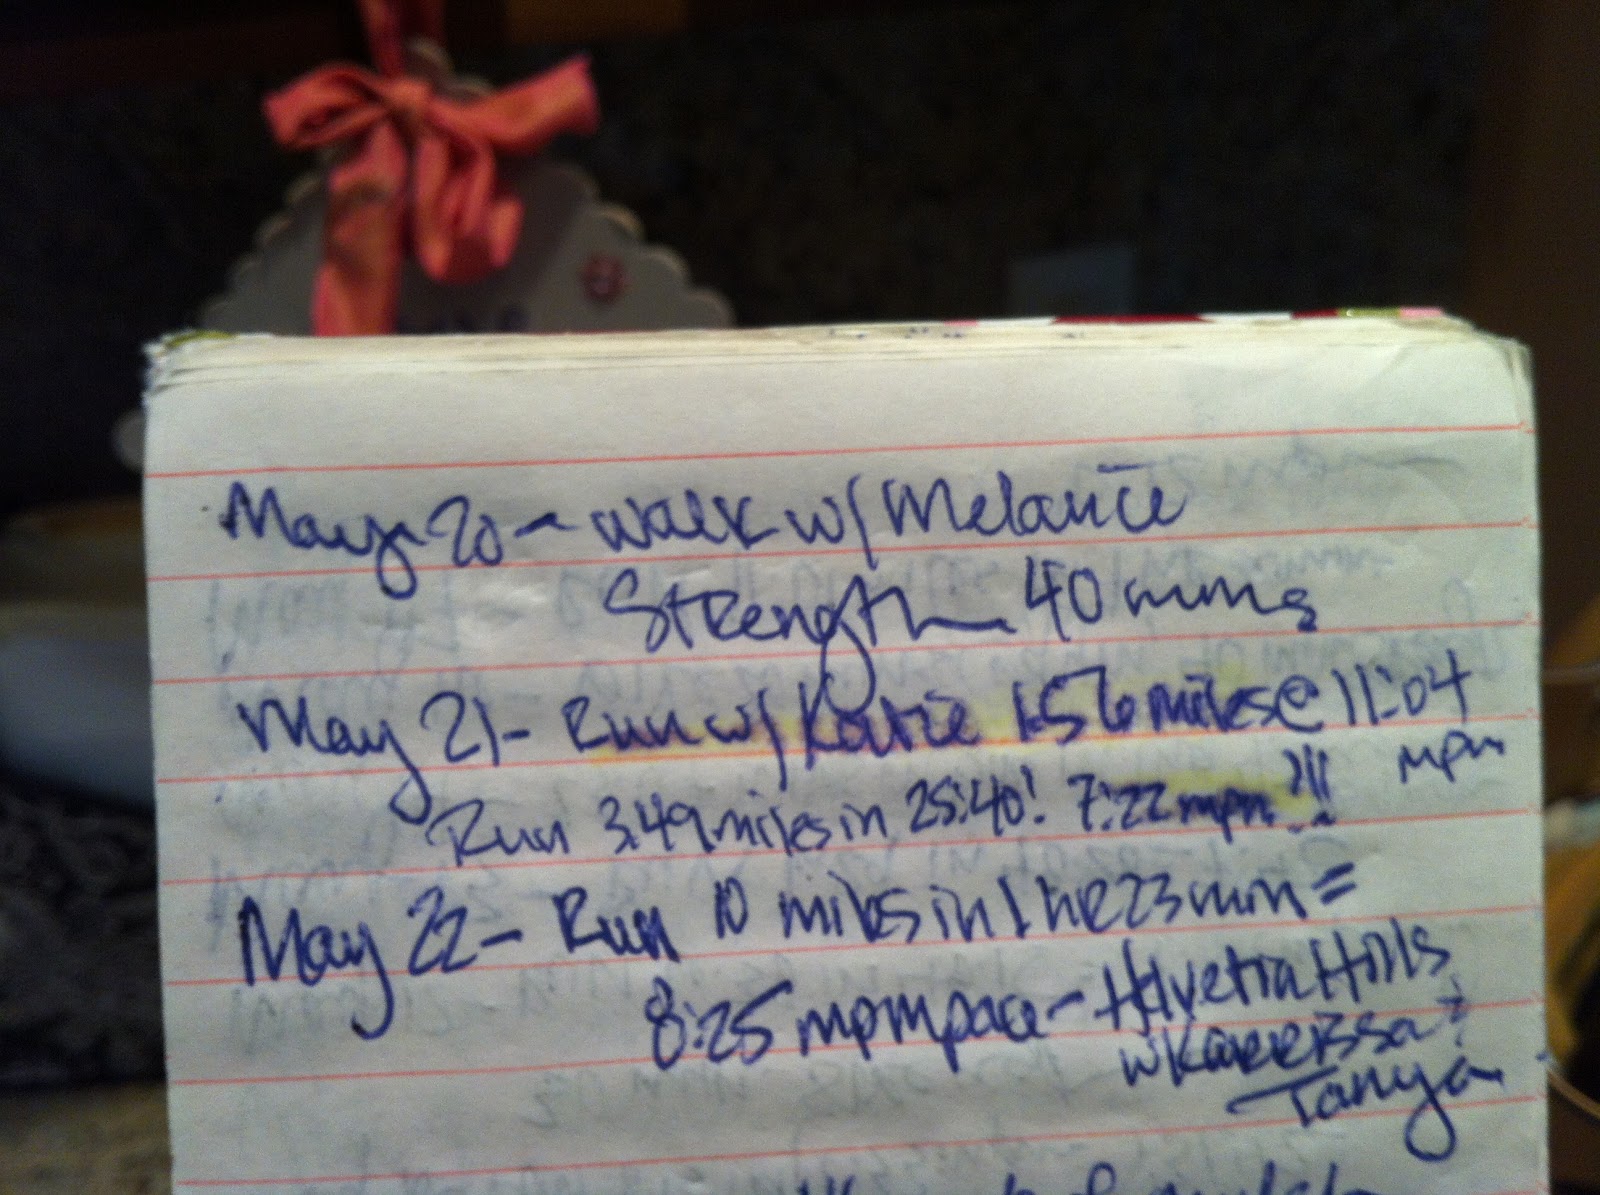 May 20 - walk w/ Melanie
Strength 40 mins
May 21 - Run w/ Katie 1.56 miles @ 11:04
mpm
Run 3.49 miles in 25:40! 7:22 mpm !!!
May 22 - Run 10 miles in 1 hr 23 min =
8:25 mpm pace - Helvetia Hills
w/ Karrissa &
Tanya